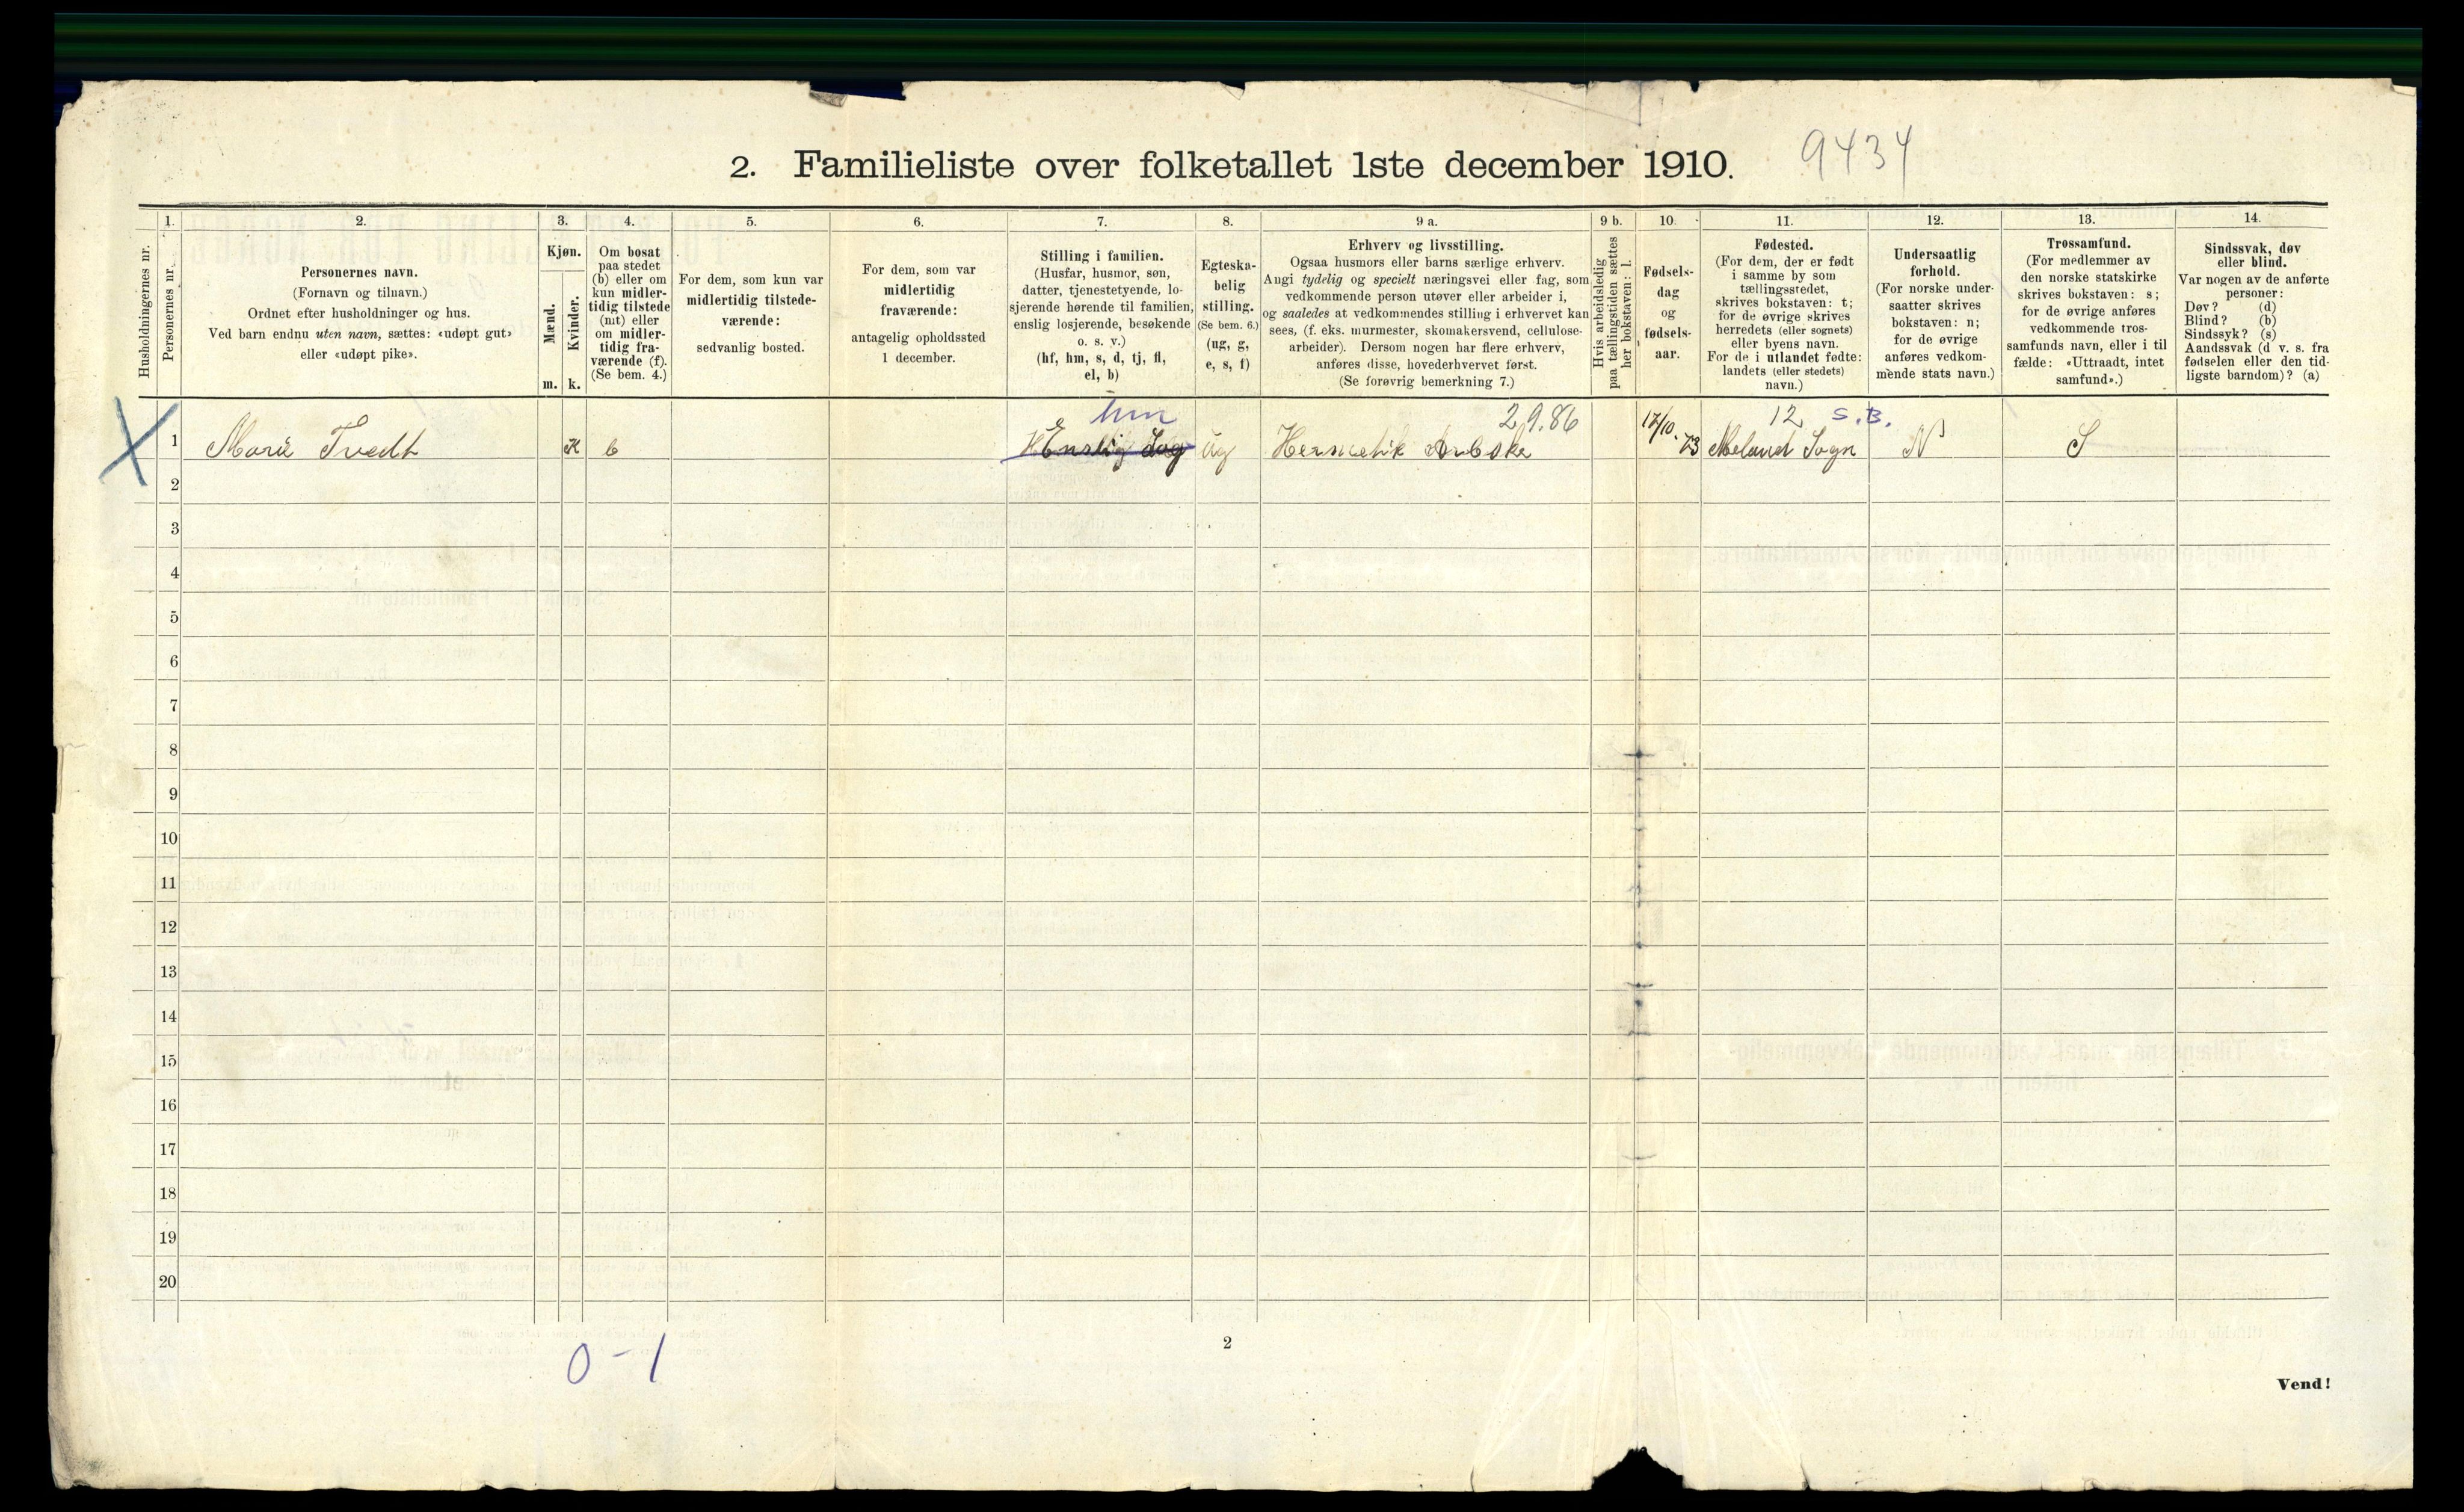 2. Familieliste over folketallet 1ste december 1910. 9434
Husholdningernes nr.
1.
Personernes nr.
2.
Personernes navn.
(Fornavn og tilnavn.)
Ordnet efter husholdninger og hus.
Ved barn endnu uten navn, sættes: «udøpt gut»
eller «udøpt pike».
3.
Kjøn.
Mænd.
m.
Kvinder.
k.
4.
Om bosat
paa stedet
(b) eller om
kun midler-
tidig tilstede
(mt) eller
om midler-
tidig fra-
værende (f).
(Se bem. 4.)
5.
For dem, som kun var
midlertidig tilstede-
værende:
sedvanlig bosted.
6.
For dem, som var
midlertidig
fraværende:
antagelig opholdssted
1 december.
7.
Stilling i familien.
(Husfar, husmor, søn,
datter, tjenestetyende, lo-
sjerende hørende til familien,
enslig losjerende, besøkende
o. s. v.)
(hf, hm, s, d, tj, fl,
el, b)
8.
Egteska-
belig
stilling.
(Se bem. 6.)
(ug, g,
e, s, f)
9 a.
Erhverv og livsstilling.
Ogsaa husmors eller barns særlige erhverv.
Angi tydelig og specielt næringsvei eller fag, som
vedkommende person utøver eller arbeider i,
og saaledes at vedkommendes stilling i erhvervet kan
sees, (f. eks. murmester, skomakersvend, cellulose-
arbeider). Dersom nogen har flere erhverv,
anføres disse, hovederhvervet først.
(Se forøvrig bemerkning 7.)
9 b.
Hvis arbeidsledig
paa tællingstiden sættes
her bokstaven: l.
10.
Fødsels-
dag
og
fødsels-
aar.
11.
Fødested.
(For dem, der er født
i samme by som
tællingsstedet,
skrives bokstaven: t;
for de øvrige skrives
herredets (eller sognets)
eller byens navn.
For de i utlandet fødte:
landets (eller stedets)
navn.)
12.
Undersaatlig
forhold.
(For norske under-
saatter skrives
bokstaven: n;
for de øvrige
anføres vedkom-
mende stats navn.)
13.
Trossamfund.
(For medlemmer av
den norske statskirke
skrives bokstaven: s;
for de øvrige anføres
vedkommende tros-
samfunds navn, eller i til
fælde: «Uttraadt, intet
samfund».)
14.
Sindssvak, døv
eller blind.
Var nogen av de anførte
personer:
Døv? (d)
Blind? (b)
Sindssyk? (s)
Aandssvak (d v. s. fra
fødselen eller den tid-
ligste barndom)? (a)
hm 29.86 12 S.B.
1 Marie Tvedt K b Enslig Log ug Hermetik Arbske 17/10.73 Meland Sogn N S
2
3
4
5
6
7
8
9
10
11
12
13
14
15
16
17
18
19
20
0-1
2
Vend!